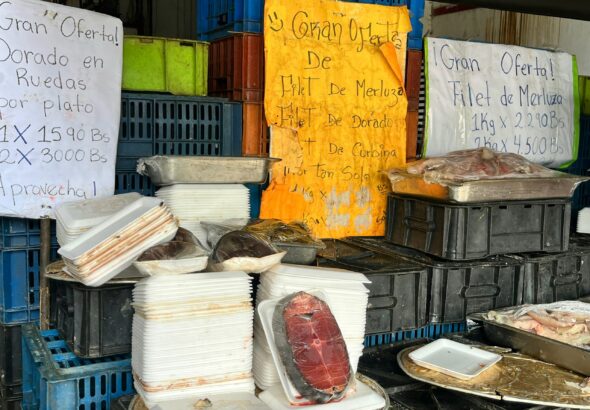 ¡Gran Oferta!
Dorado en
Ruedas
por plato
1X 1590 Bs
2X 3000 Bs
Aprovecha!
Gran Oferta
De
Filet de Merluza
Filet de Dorado
Filet de Corbina
Por tan Solo
1 Kg X
¡Gran Oferta!
Filet de Merluza
1Kg X 2.290 Bs
2Kg X 4.500 Bs